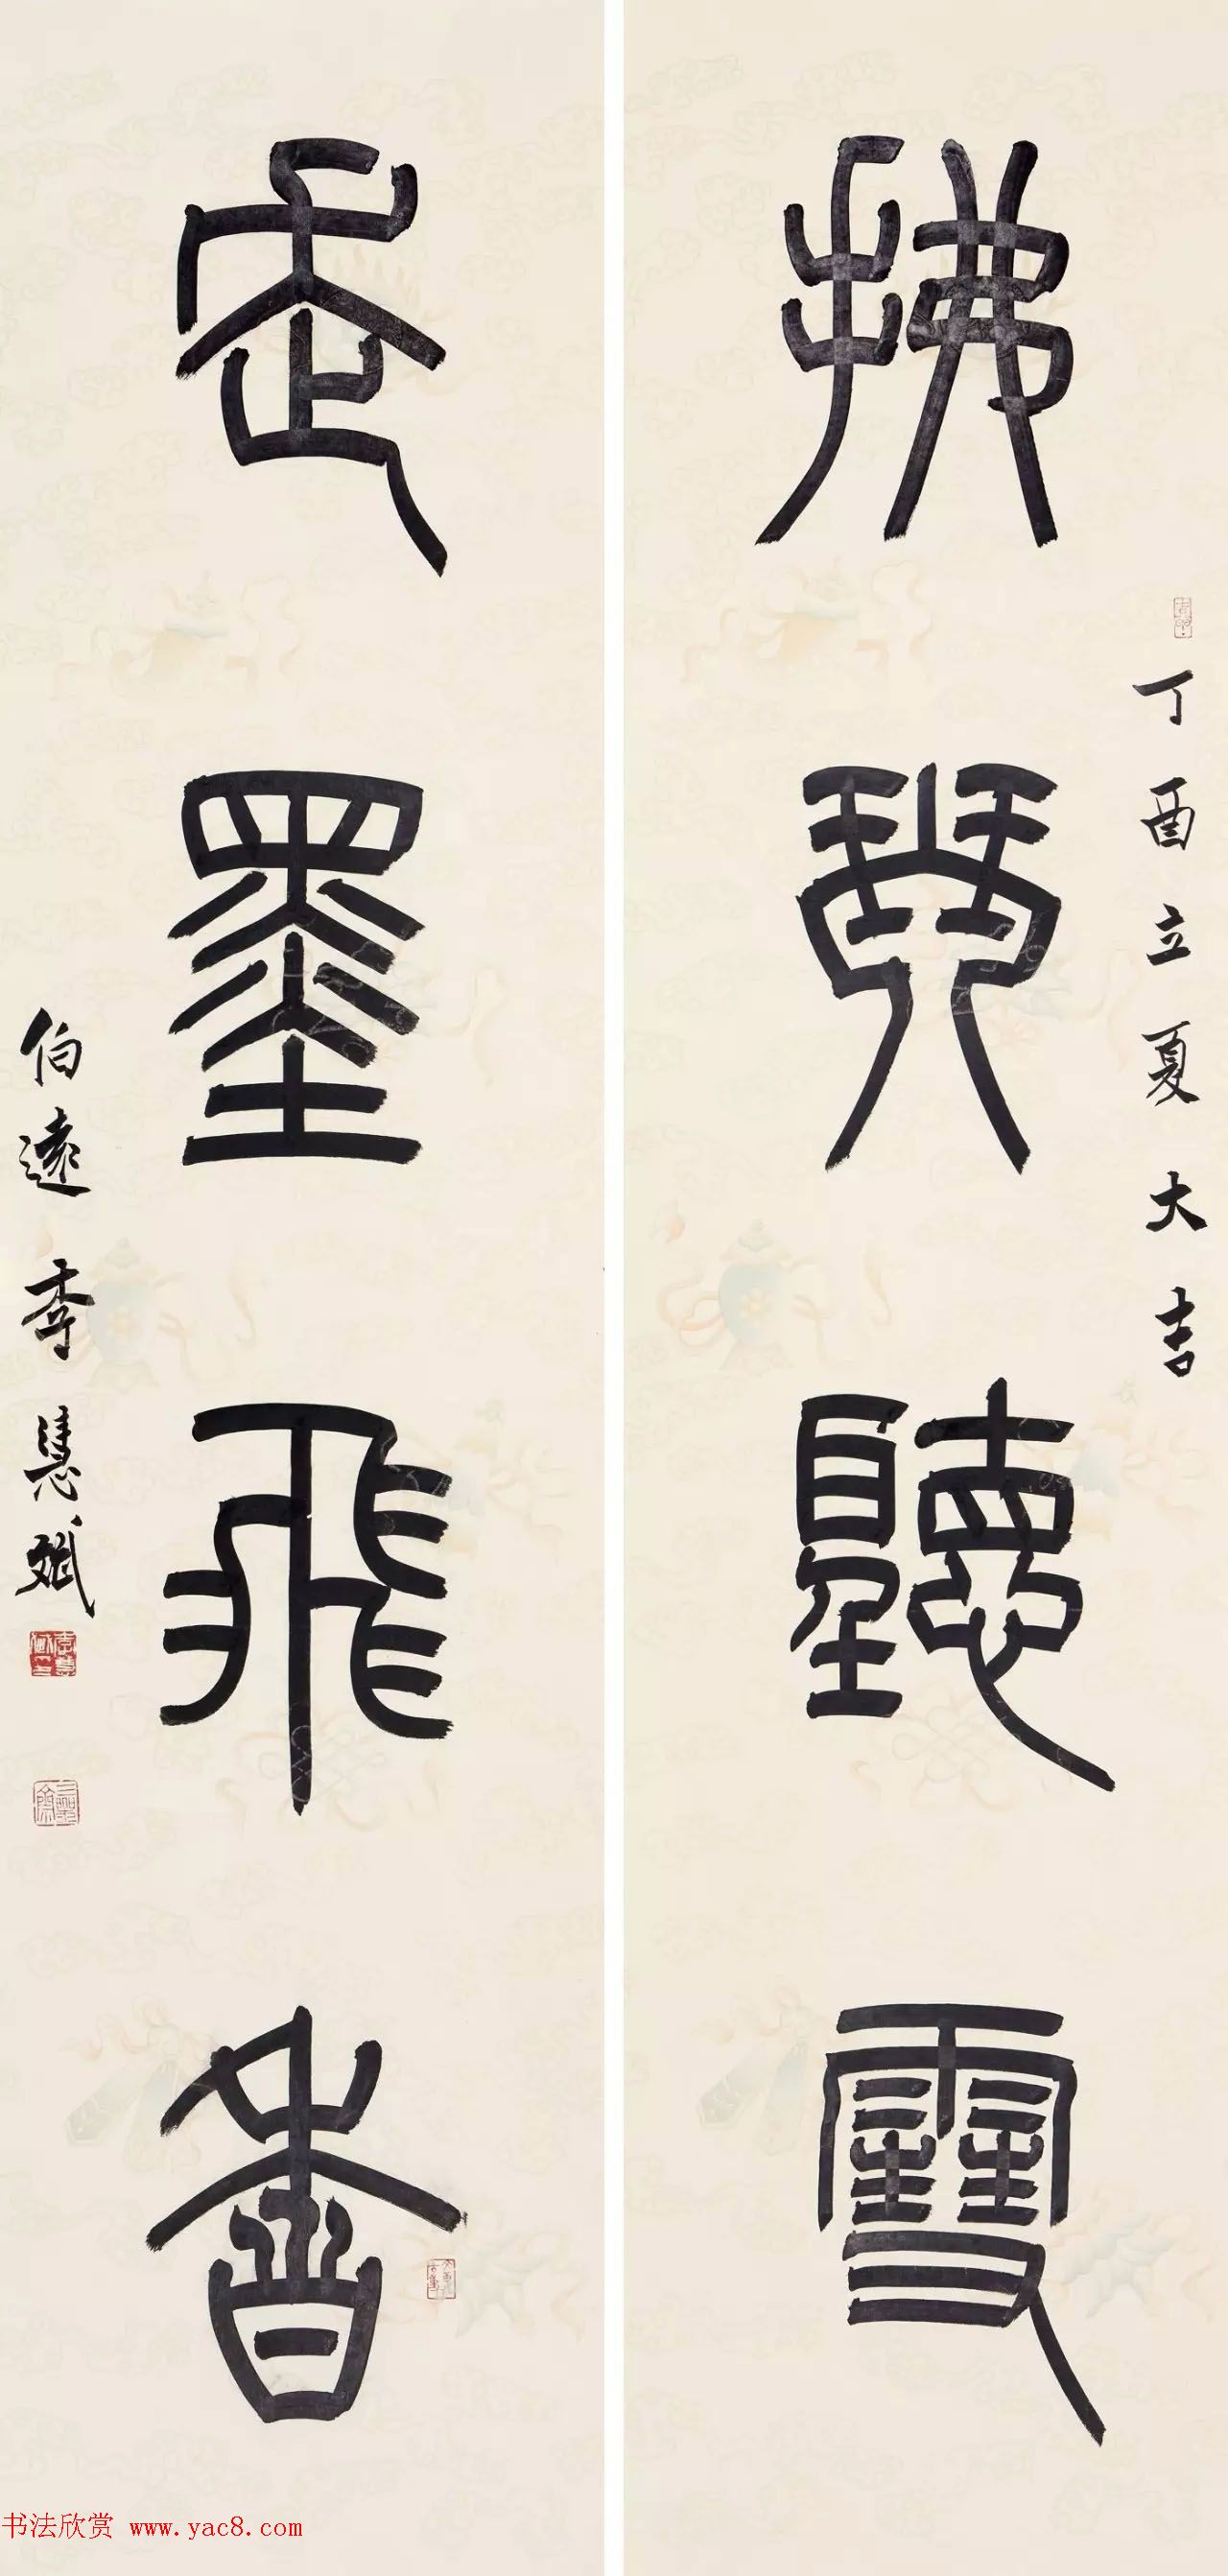 拂琴聽雪
丁酉立夏大吉
走墨飛香
伯遠李慧斌
书法欣赏 www.yac8.com